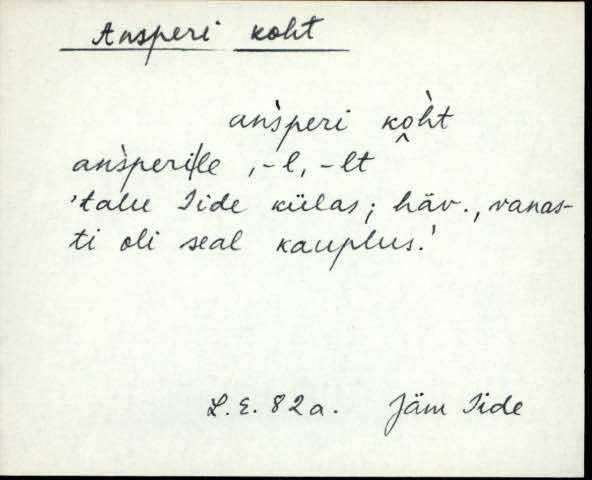 Ansperi koht
ans̀peri koh̀t
ans̀peri|le, -l, -lt
'talu Iide külas; häv., vanas-
ti oli seal kauplus.'
L.E. 82a. Jäm Iide